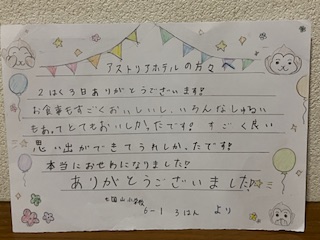 アストリアホテルの方々へ
2はく3日ありがとうございます!!
お食事もすごくおいしいし、いろんなしゅるい
もあってとてもおいしかったです!! すごく良い
思い出ができてうれしかったです!
本当におせわになりました!!
ありがとうございました!!
七国山小学校
6-1 3はん より